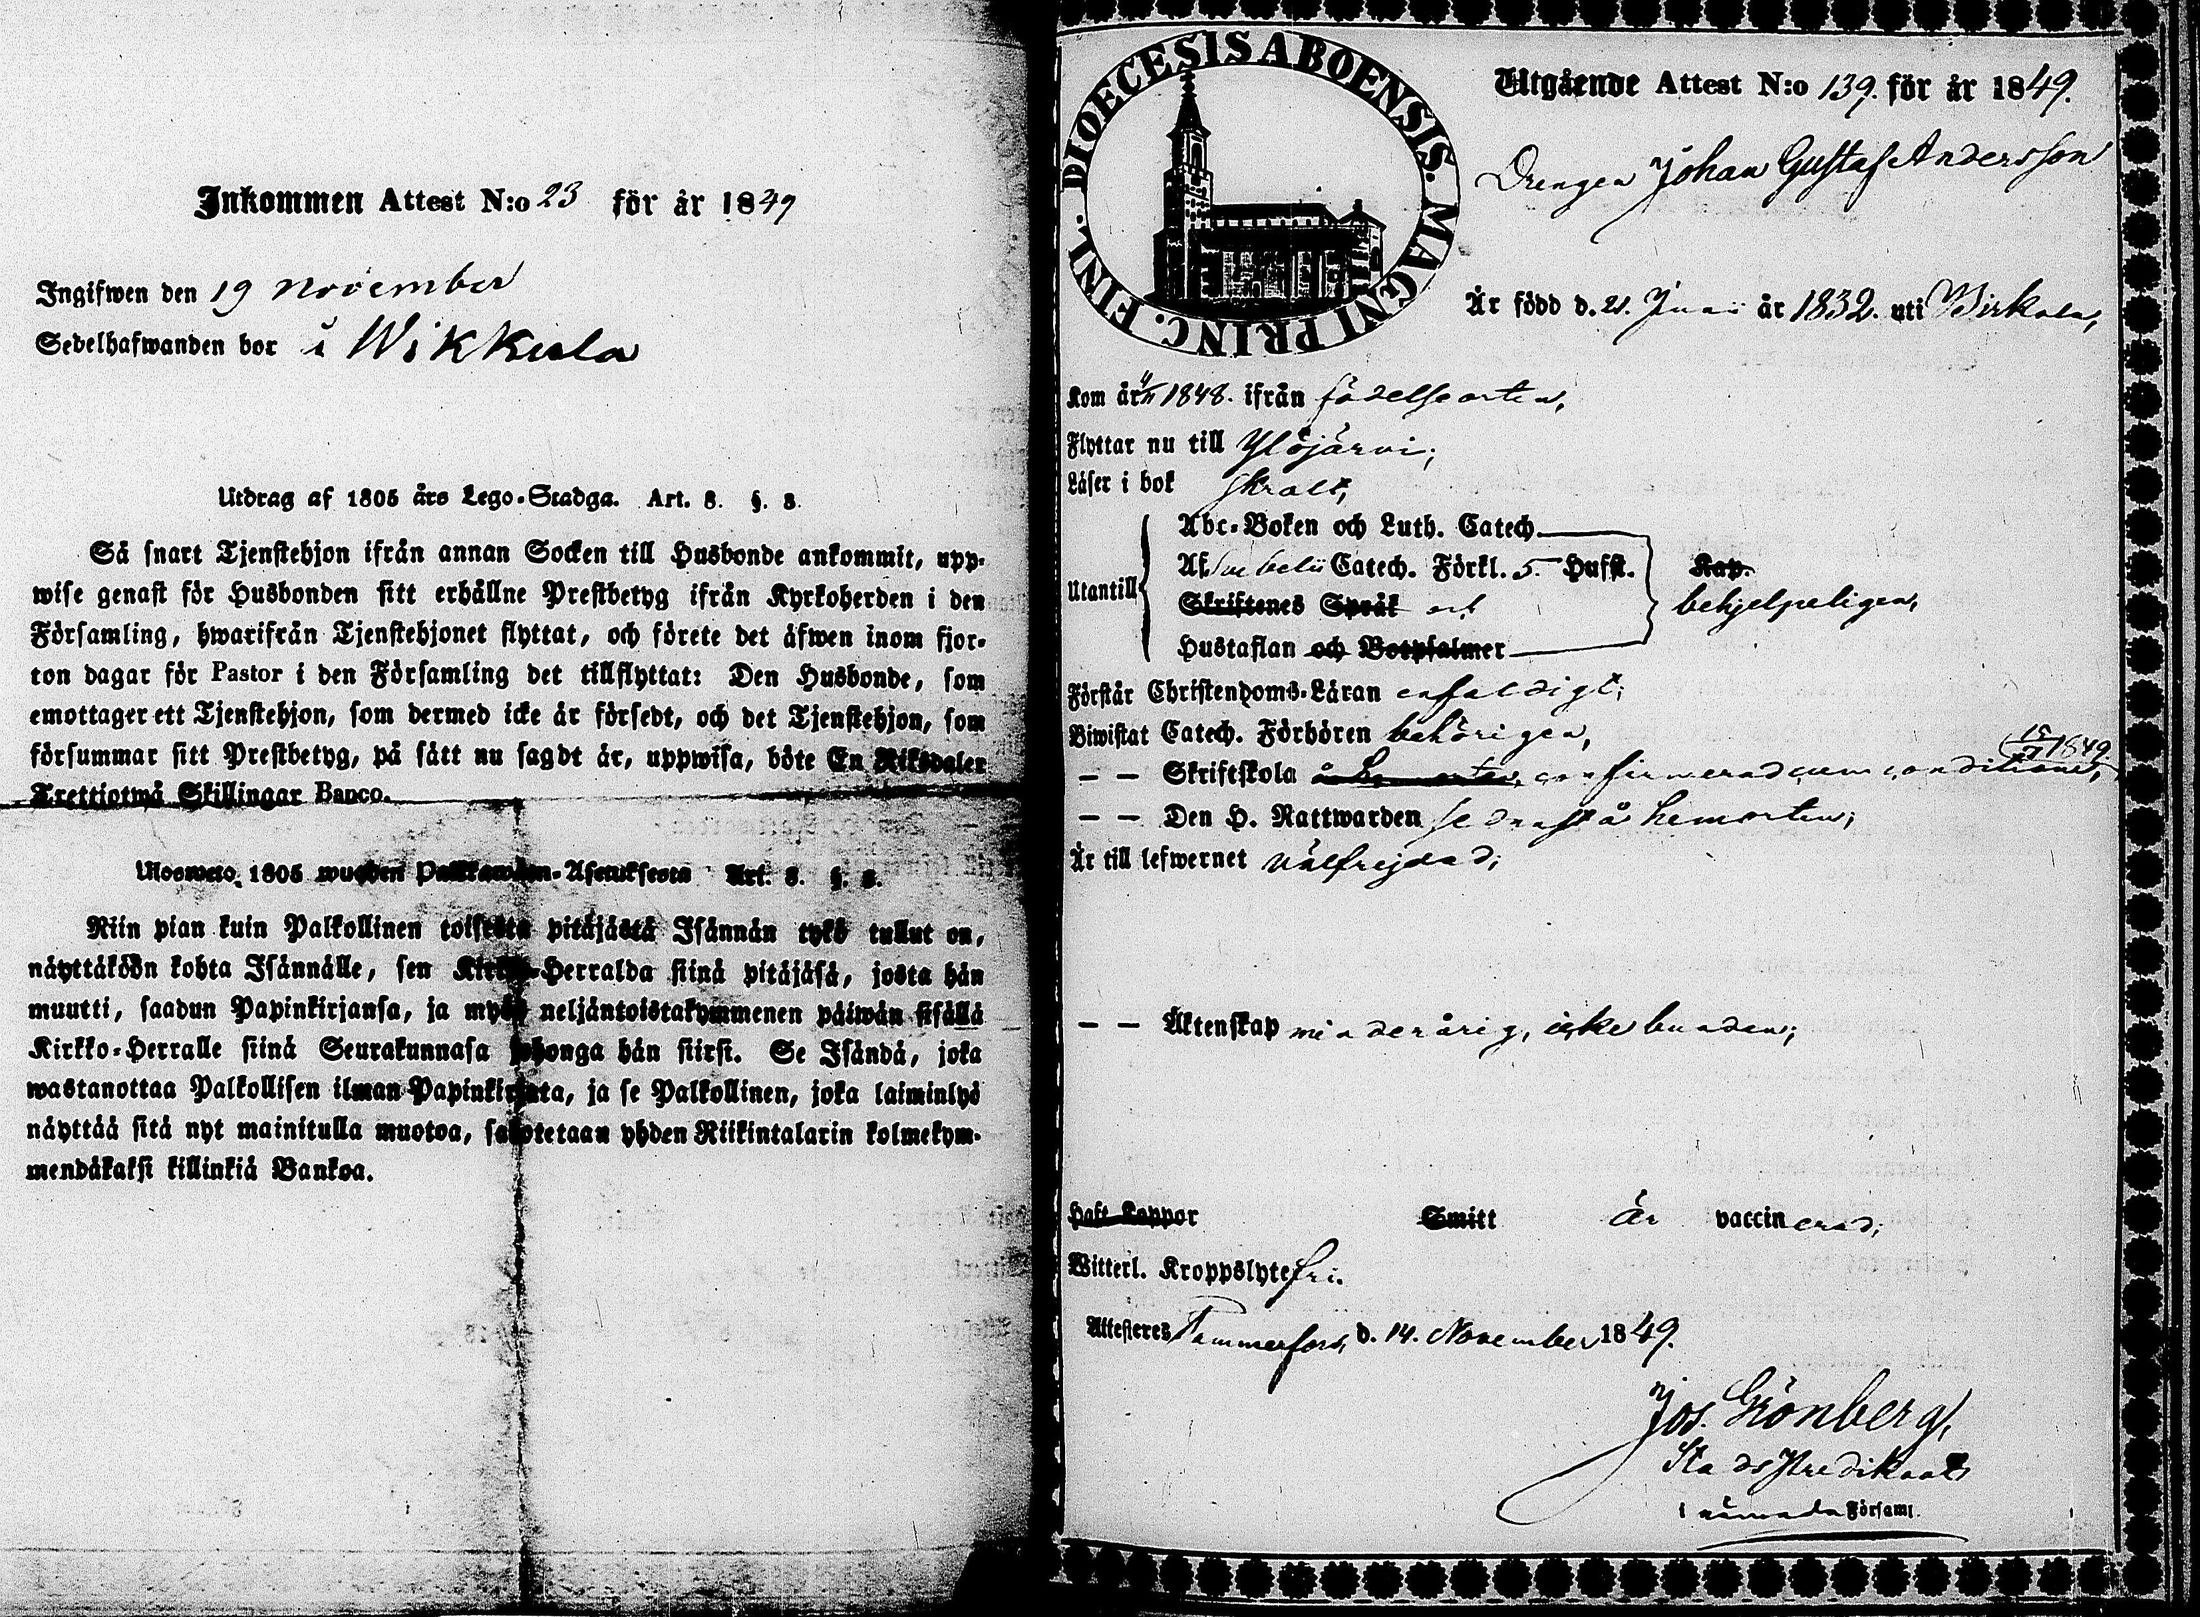 Inkommen Attest N:o 23 för år 1849
Ingifwen den 19 November
Sedelhafwanden bor i Wikkula
Utdrag af 1805 års Lego-Stadga. Art. 8. §. 8.
Så snart Tjenstehjon ifrån annan Socken till Husbonde ankommit, upp-
wise genast för Husbonden sitt erhållne Prestbetyg ifrån Kyrkoherden i den
Församling, hwarifrån Tjenstehjonet flyttat, och förete det äfwen inom fjor-
ton dagar för Pastor i den Församling det tillflyttat: Den Husbonde, som
emottager ett Tjenstehjon, som dermed icke är försedt, och det Tjenstehjon, som
försummar sitt Prestbetyg, på sätt nu sagdt är, uppwisa, böte En Riksdaler
Trettiotwå Skillingar Banco.
Ulosweto 1805 wuoden Palkawäen-Asetuksesta Art. 8. §. 8.
Niin pian kuin Palkollinen toisesta pitäjästä Isännän tykö tullut on,
näyttäköön kohta Isännälle, sen Kirkko-Herralda siinä pitäjäsä, josta hän
muutti, saadun Papinkirjansa, ja myös neljäntoistakymmenen päiwän sisällä
Kirkko-Herralle siinä Seurakunnasa johonga hän siirsi. Se Isändä, joka
wastanottaa Palkollisen ilman Papinkirjata, ja se Palkollinen, joka laiminlyö
näyttää sitä nyt mainitulla muotoa, sakotetaan yhden Riikintalarin kolmekym-
mendäkaksi killinkiä Bankoa.
DIOECESIS ABOENSIS. MAGNI PRINC. FINL.
Utgående Attest N:o 139. för år 1849.
Drengen Johan Gustaf Andersson
Är född d. 21. Juni år 1832. uti Birkala,
Kom år 1848. ifrån födelseorten,
Flyttar nu till Ylöjärvi;
Läser i bok skralt,
Utantill
Abc-Boken och Luth. Catech.
Af Svebelii Catech. Förkl. 5. Hufst.
Skriftenes Språk och
Hustaflan och Botpsalmer
Kap.
behjelpeligen,
Förstår Christendoms-Läran enfaldigt;
Biwistat Catech. Förhören behörigen,
— — Skriftskola confirmerad cum conditione, 1849
— — Den H. Nattwarden sednast å hemorten;
Är till lefwernet välfrejdad;
— — Äktenskap minderårig, icke bunden;
Haft Koppor Smitt Är vaccinerad;
Witterl. Kroppslyte fri.
Attesteres Tammerfors, d. 14. November 1849.
Jos. Grönberg,
Stads Predikant
i nämnda Församl.